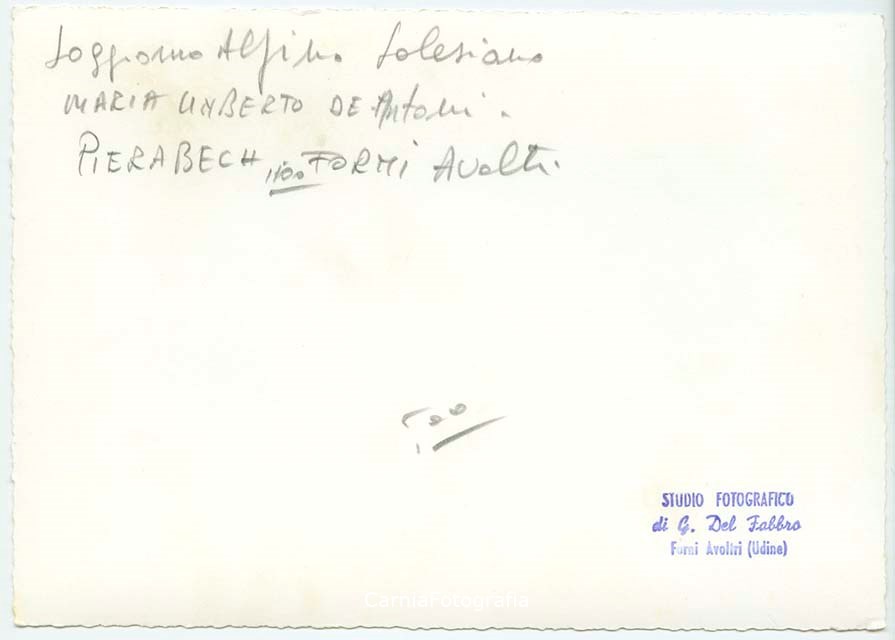 Soggiorno Alpino Salesiano
MARIA UMBERTO DE Antoni.
PIERABECH, FORNI Avoltri.
500
STUDIO FOTOGRAFICO
di G. Del Fabbro
Forni Avoltri (Udine)
CarniaFotografia